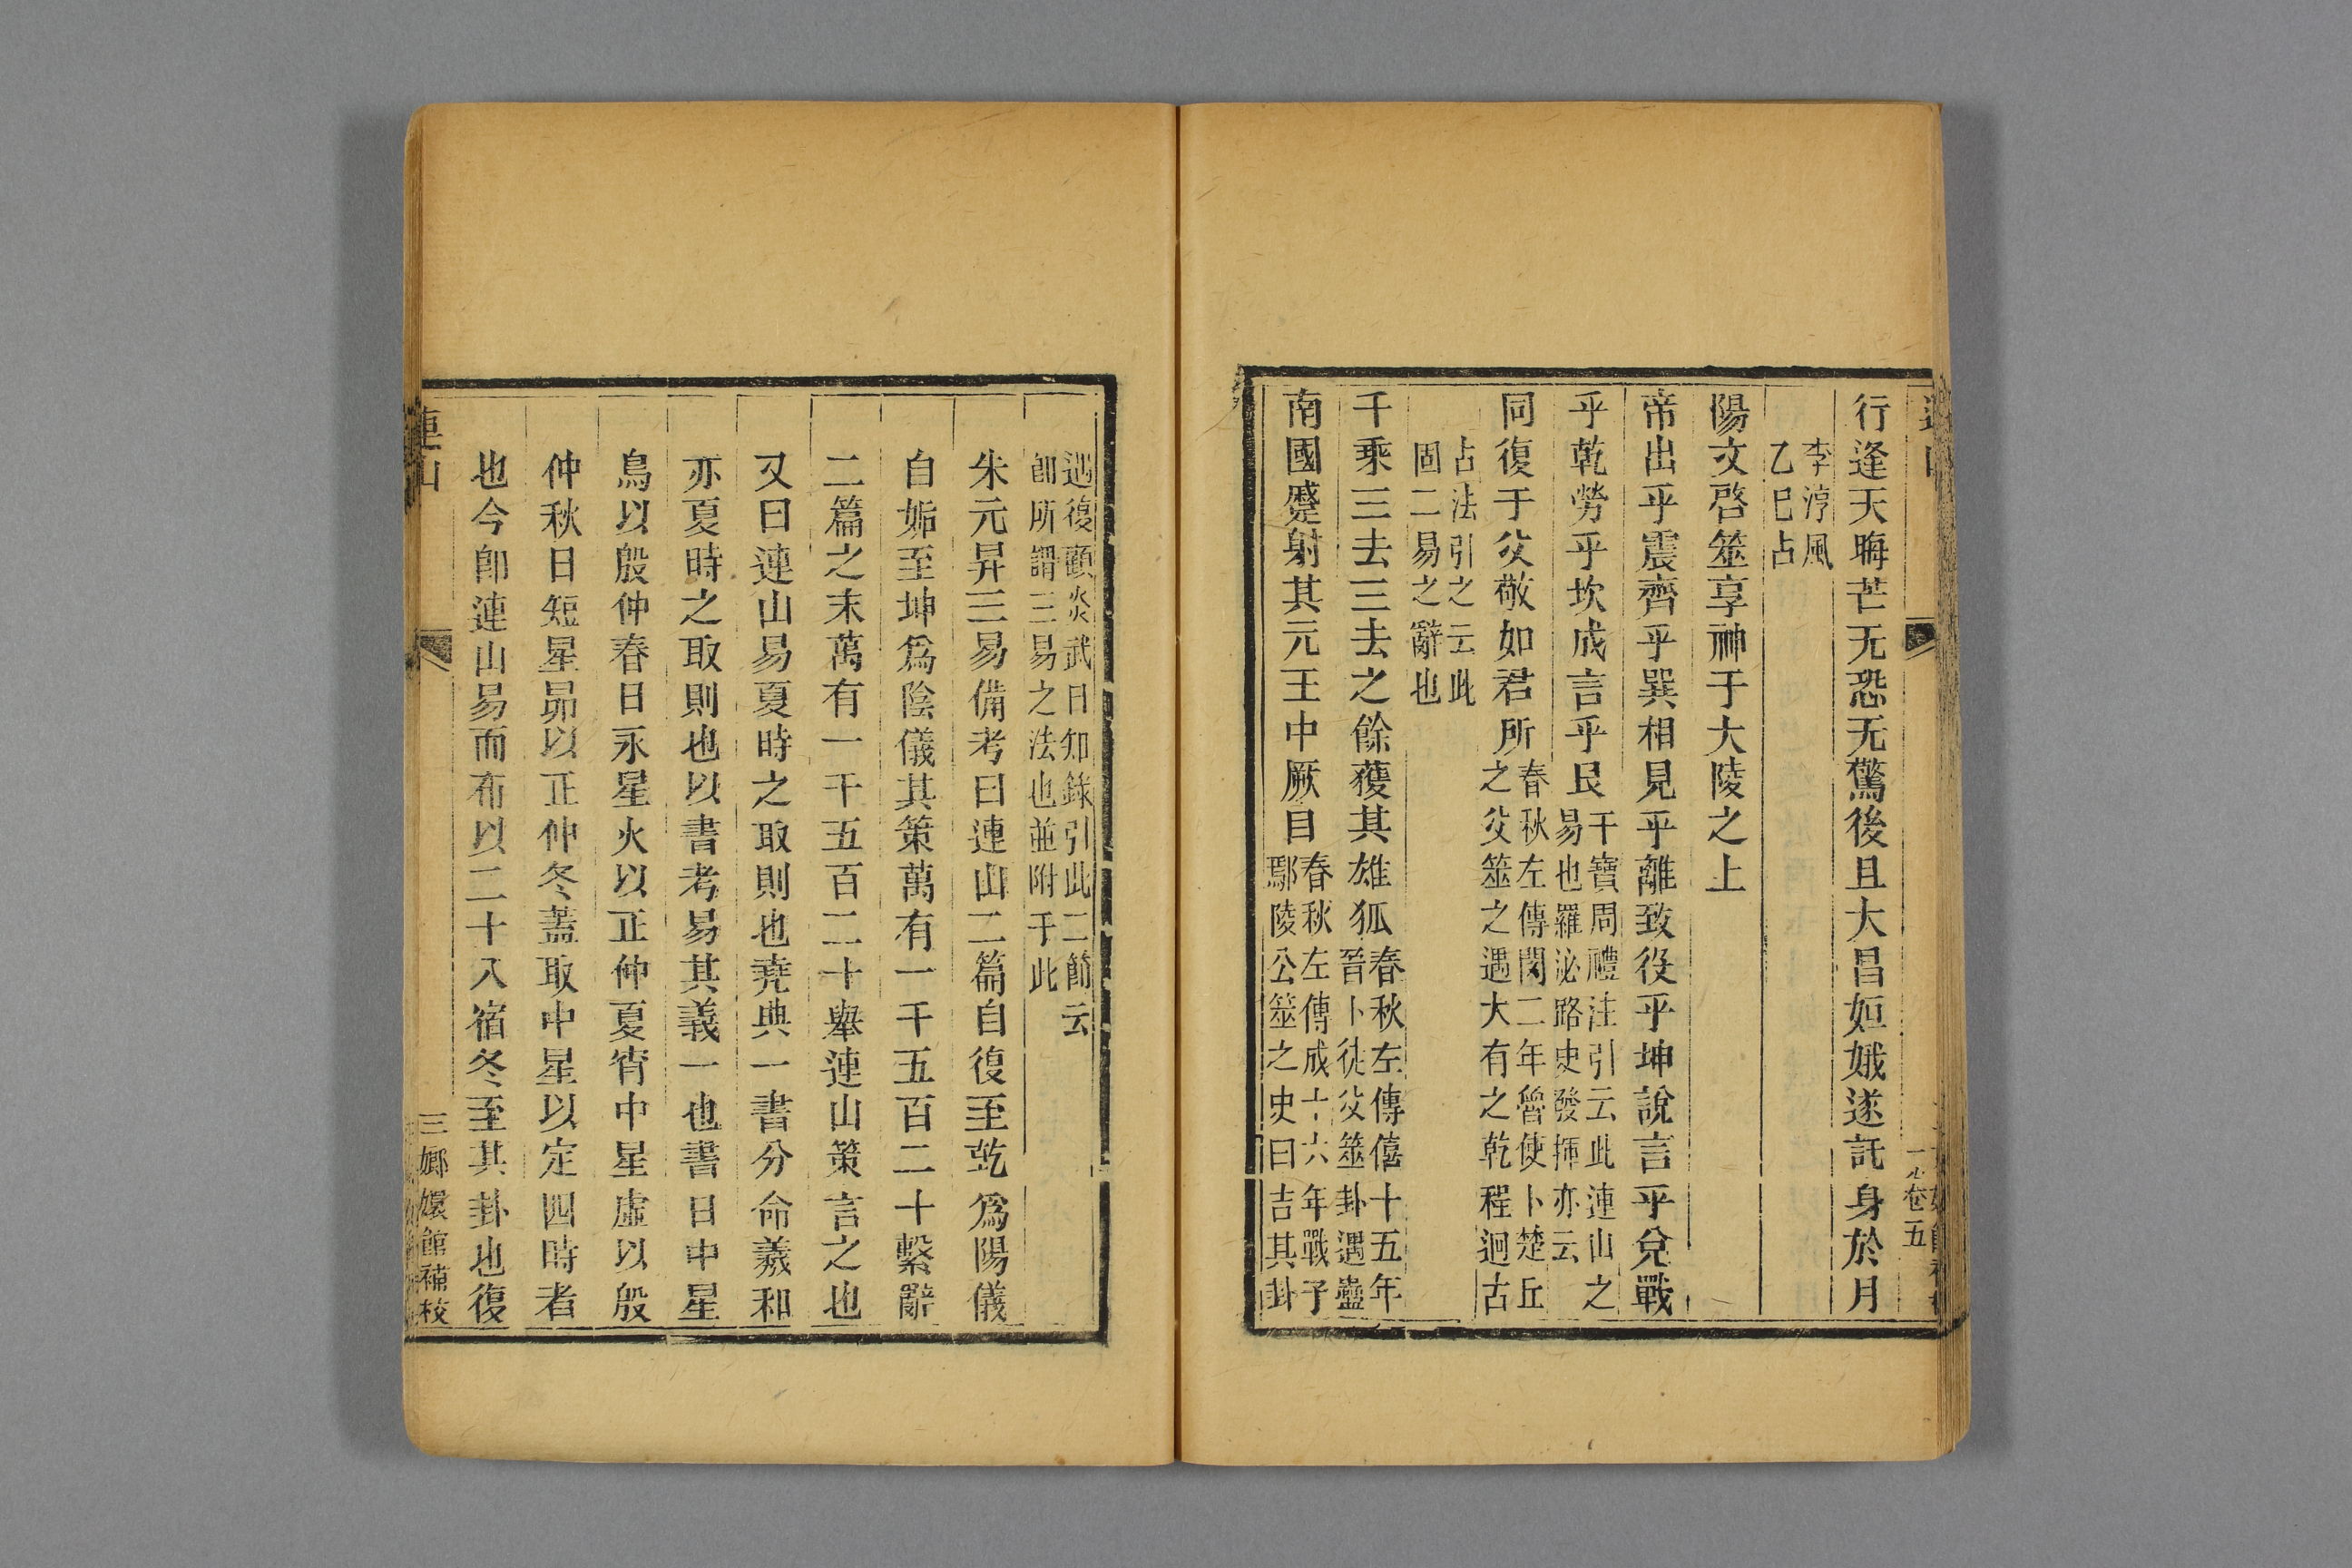 行逢天晦芒无恐无驚後且大昌姮娥遂託身於月
李淳風
乙巳占
陽文啓筮享神于大陵之上
帝出乎震齊乎巽相見乎離致役乎坤說言乎兌戰
乎乾勞乎坎成言乎艮干寶周禮注引云此連山之
易也羅泌路史發揮亦云
同復于父敬如君所春秋左傳閔二年魯使卜楚丘
之父筮之遇大有之乾程迥古
占法引之云此
固二易之辭也
千乘三去三去之餘獲其雄狐春秋左傳僖十五年
晉卜徒父筮卦遇蠱
南國蹙射其元王中厥目春秋左傳成十六年戰于
鄢陵公筮之史曰吉其卦
遇復顧炎武日知錄引此二節云
卽所謂三易之法也並附于此
朱元昇三易備考曰連山二篇自復至乾爲陽儀
自姤至坤爲陰儀其策萬有一千五百二十繫辭
二篇之末萬有一千五百二十舉連山策言之也
又曰連山易夏時之取則也堯典一書分命羲和
亦夏時之取則也以書考易其義一也書日中星
鳥以殷仲春日永星火以正仲夏宵中星虛以殷
仲秋日短星昴以正仲冬蓋取中星以定四時者
也今卽連山易而布以二十八宿冬至其卦也復
連山
三
嫏嬛館補校